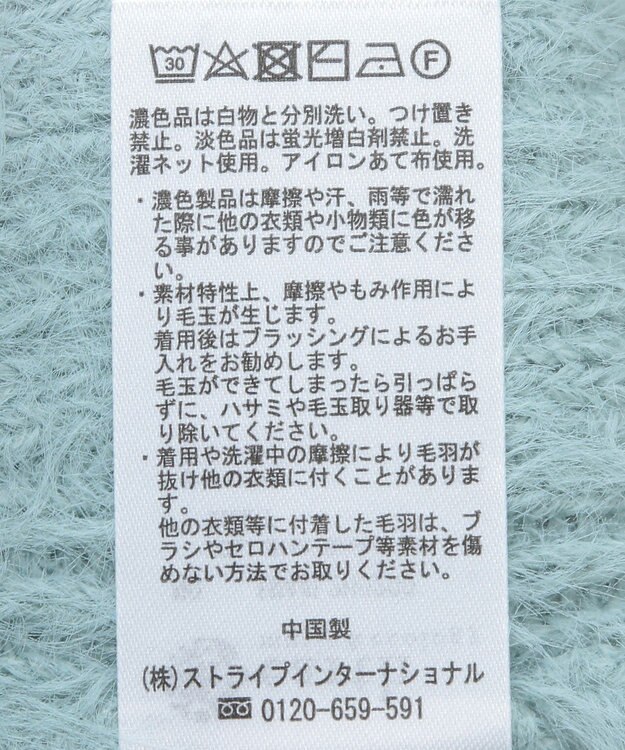 30 F
濃色品は白物と分別洗い。つけ置き
禁止。淡色品は蛍光増白剤禁止。洗
濯ネット使用。アイロンあて布使用。
・濃色製品は摩擦や汗、雨等で濡れ
た際に他の衣類や小物類に色が移
る事がありますのでご注意くださ
い。
・素材特性上、摩擦やもみ作用によ
り毛玉が生じます。
着用後はブラッシングによるお手
入れをお勧めします。
毛玉ができてしまったら引っぱら
ずに、ハサミや毛玉取り器等で取
り除いてください。
・着用や洗濯中の摩擦により毛羽が
抜け他の衣類に付くことがありま
す。
他の衣類等に付着した毛羽は、ブ
ラシやセロハンテープ等素材を傷
めない方法でお取りください。
中国製
(株)ストライプインターナショナル
0120-659-591